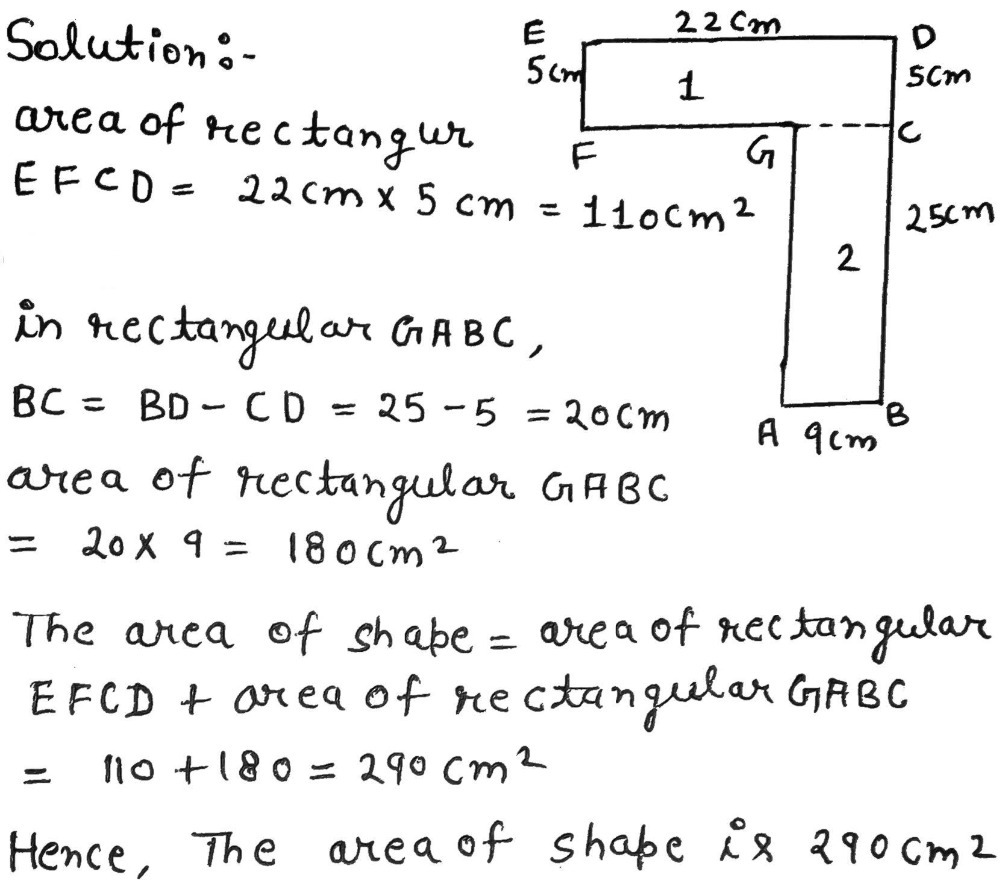 Solution:-
E 22cm D
5cm 1 5cm
area of rectangur
F G C
EFCD = 22cm x 5 cm = 110cm2
25cm
2
in rectangular GABC,
BC = BD - CD = 25 - 5 = 20cm
A 9cm B
area of rectangular GABC
= 20 x 9 = 180cm2
The area of shape = area of rectangular
EFCD + area of rectangular GABC
= 110 + 180 = 290 cm2
Hence, The area of shape is 290cm2